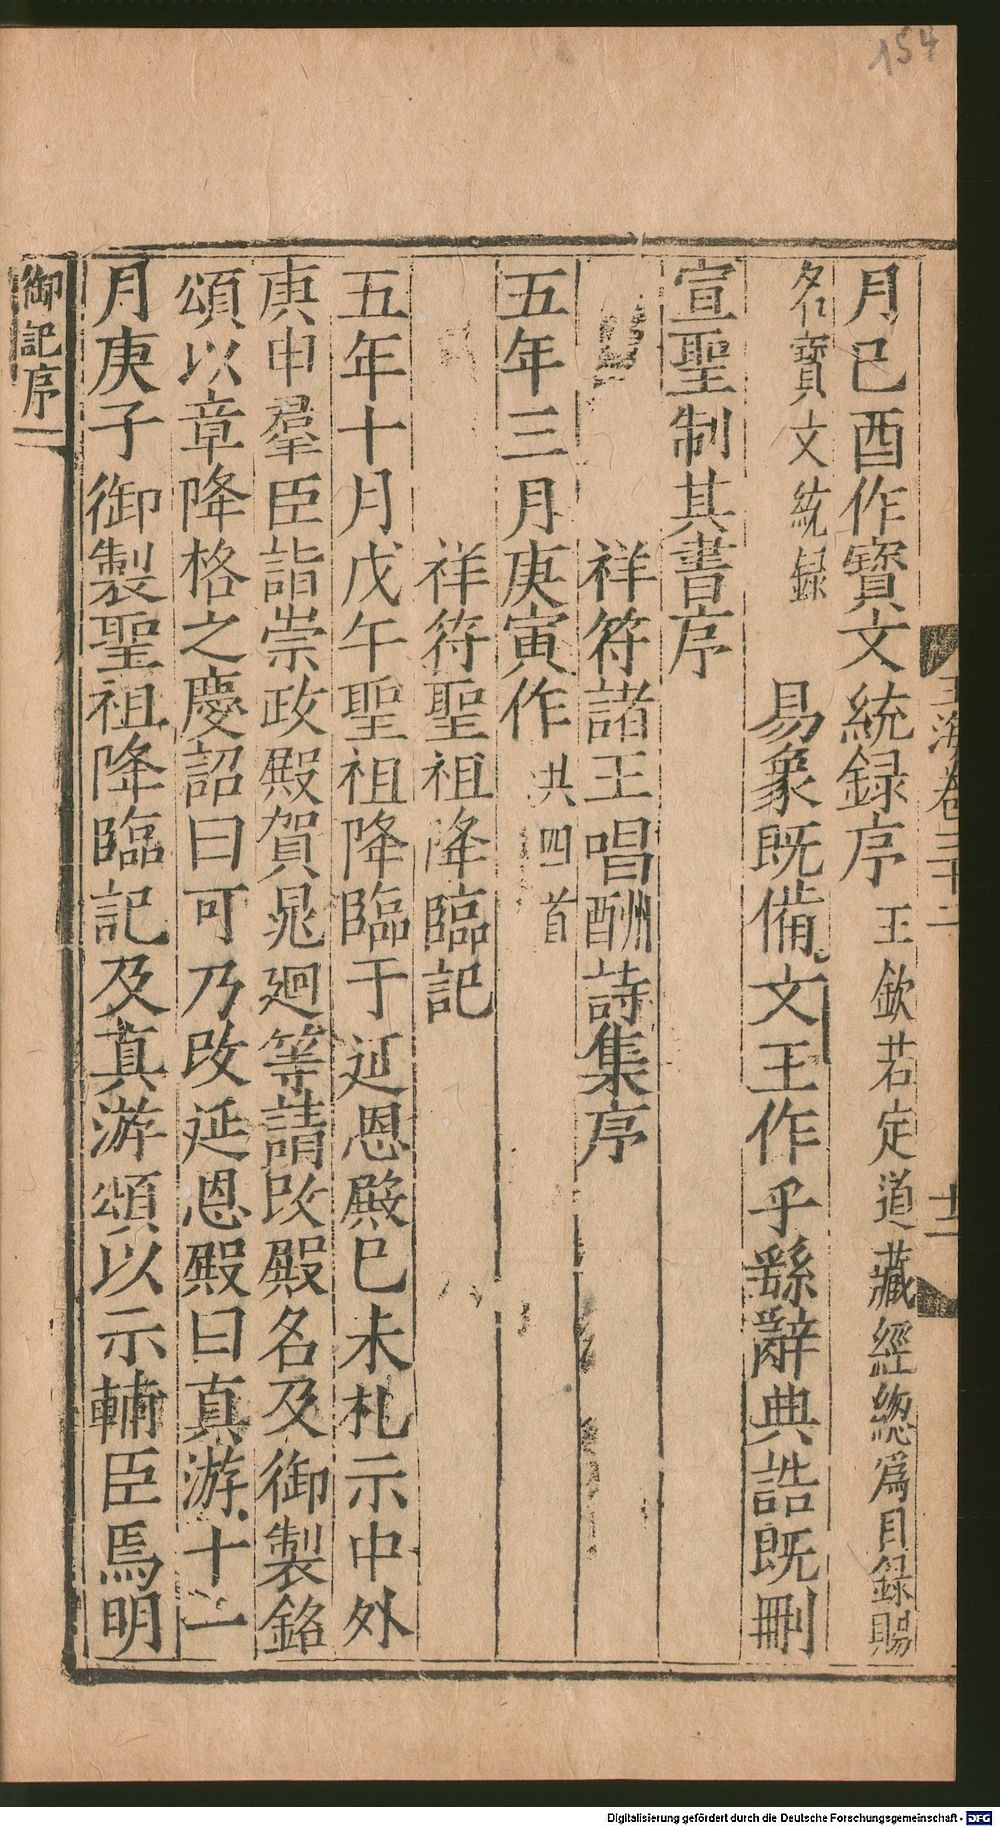 154
玉海卷三十二
十二
月己酉作寶文統録序王欽若定道藏經緫爲目録賜
名寶文統録
易象既備文王作乎繇辭典誥既刪
宣聖制其書序
祥符諸王唱酬詩集序
五年三月庚寅作共四首
祥符聖祖降臨記
五年十月戊午聖祖降臨于延恩殿己未札示中外
庚申羣臣詣崇政殿賀晁迥等請改殿名及御製銘
頌以章降格之慶詔曰可乃改延恩殿曰真游十一
月庚子御製聖祖降臨記及真游頌以示輔臣焉明
御記序
Digitalisierung gefördert durch die Deutsche Forschungsgemeinschaft - DFG